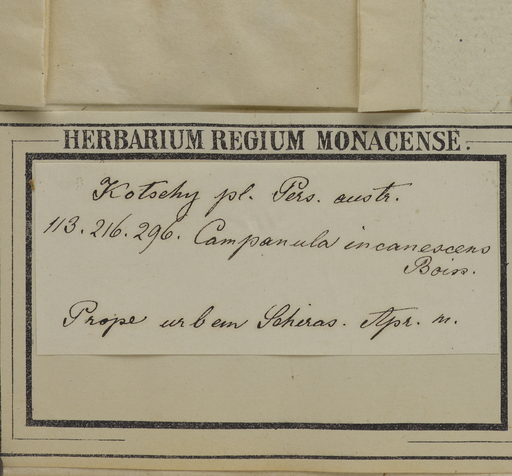 HERBARIUM REGIUM MONACENSE.
Kotschy pl. Pers. austr.
113. 216. 296. Campanula incanescens
Boiss.
Prope urbem Schiras. Apr. m.